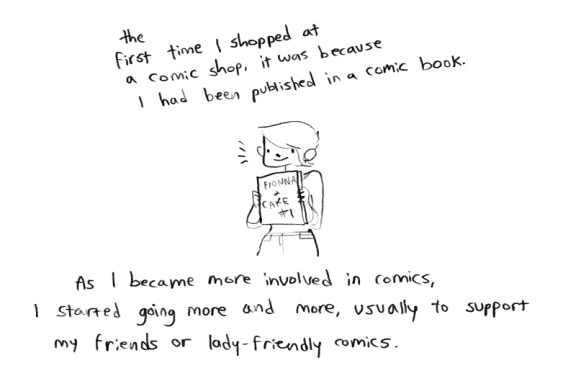 the
first time I shopped at
a comic shop, it was because
I had been published in a comic book.
FIONNA
+
CAKE
#1
As I became more involved in comics,
I started going more and more, usually to support
my friends or lady-friendly comics.